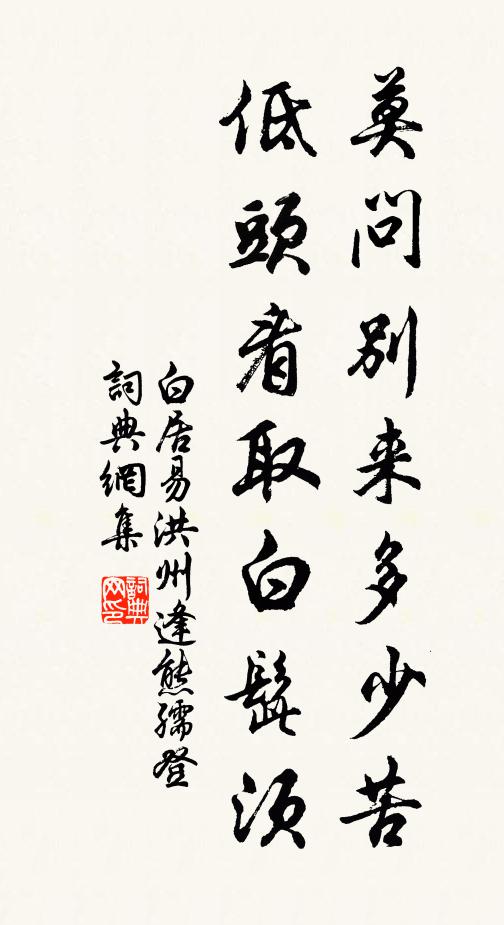 莫問別来多少苦
低頭看取白髭須
白居易洪州逢熊孺登
詞典網集
詞典
网印